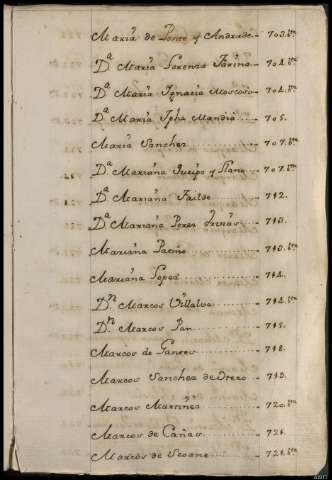 Maria de Ponce y Andrade - 703. bta
D.ª Maria Lorenza Farina - 704. bta
D.ª Maria Ignacia Moscoso - 704. bta
D.ª Maria Jpha Mandiá - 705.
Maria Sanchez - 707. bta
D.ª Mariana Queipo y Llano - 707. bta
D.ª Mariana Failde - 712.
D.ª Mariana Perez - 713.
Mariana Patiño - 713. bta
Mariana Lopez - 714.
D.n Marcos Villalva - 714. bta
D.n Marcos Pan - 715.
Marcos de - 718.
Marcos Sanchez de - 719.
Marcos Martinez - 720. bta
Marcos de Cañas - 721.
Marcos de Seoane - 721. bta